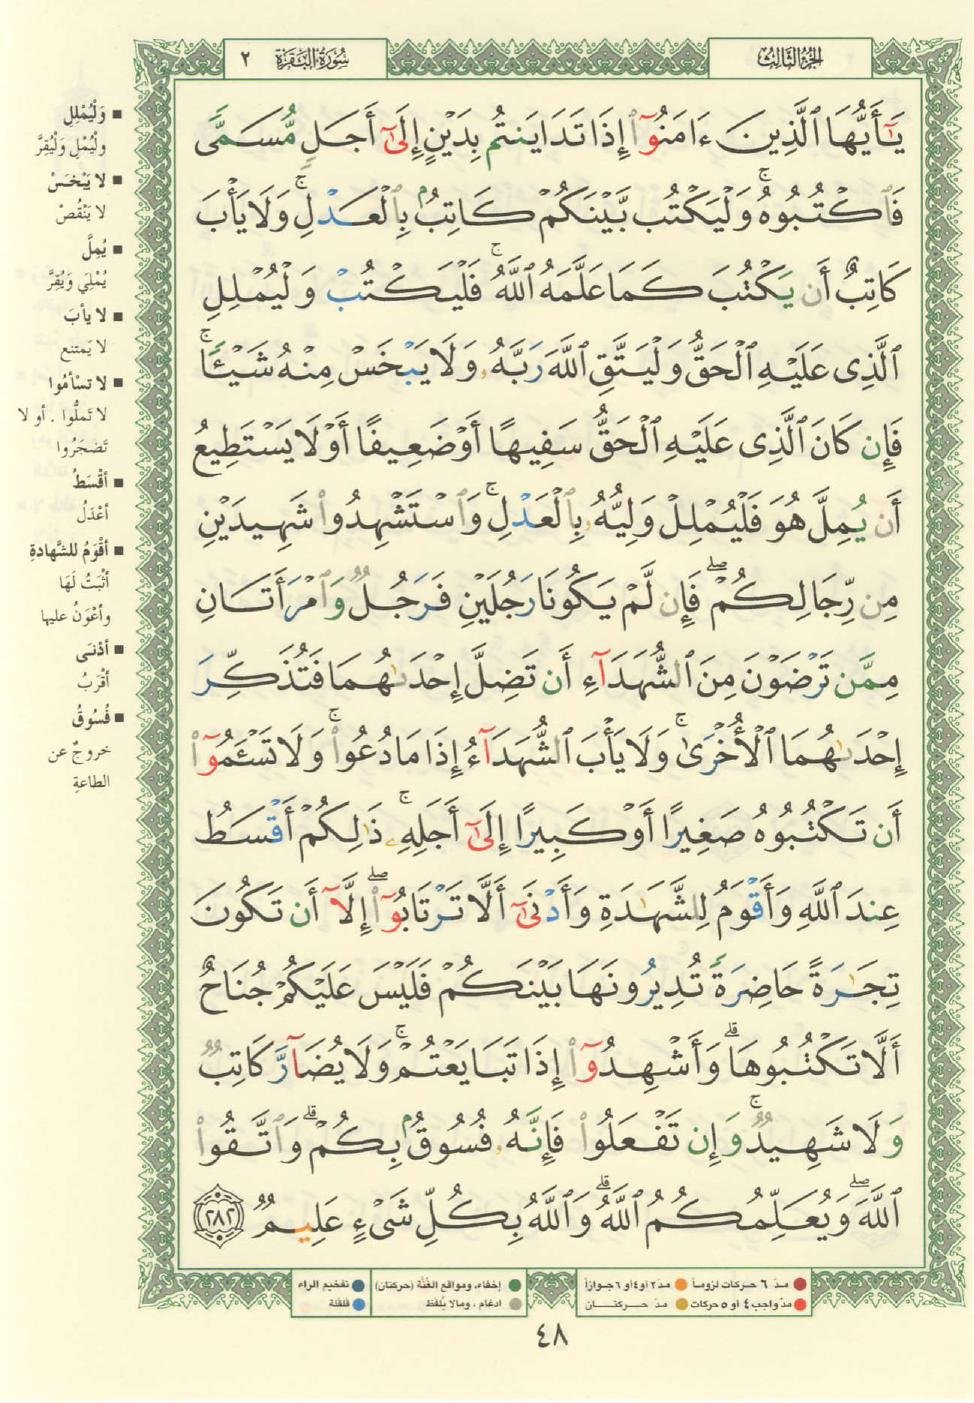 الجزء الثالث
سُورَةُ البَقَرَةِ ٢
يَٰٓأَيُّهَا ٱلَّذِينَ ءَامَنُوٓا۟ إِذَا تَدَايَنتُم بِدَيْنٍ إِلَىٰٓ أَجَلٍ مُّسَمًّى
فَٱكْتُبُوهُ ۚ وَلْيَكْتُب بَّيْنَكُمْ كَاتِبٌۢ بِٱلْعَدْلِ ۚ وَلَا يَأْبَ
كَاتِبٌ أَن يَكْتُبَ كَمَا عَلَّمَهُ ٱللَّهُ ۚ فَلْيَكْتُبْ وَلْيُمْلِلِ
ٱلَّذِى عَلَيْهِ ٱلْحَقُّ وَلْيَتَّقِ ٱللَّهَ رَبَّهُۥ وَلَا يَبْخَسْ مِنْهُ شَيْـًٔا ۚ
فَإِن كَانَ ٱلَّذِى عَلَيْهِ ٱلْحَقُّ سَفِيهًا أَوْ ضَعِيفًا أَوْ لَا يَسْتَطِيعُ
أَن يُمِلَّ هُوَ فَلْيُمْلِلْ وَلِيُّهُۥ بِٱلْعَدْلِ ۚ وَٱسْتَشْهِدُوا۟ شَهِيدَيْنِ
مِن رِّجَالِكُمْ ۖ فَإِن لَّمْ يَكُونَا رَجُلَيْنِ فَرَجُلٌ وَٱمْرَأَتَانِ
مِمَّن تَرْضَوْنَ مِنَ ٱلشُّهَدَآءِ أَن تَضِلَّ إِحْدَىٰهُمَا فَتُذَكِّرَ
إِحْدَىٰهُمَا ٱلْأُخْرَىٰ ۚ وَلَا يَأْبَ ٱلشُّهَدَآءُ إِذَا مَا دُعُوا۟ ۚ وَلَا تَسْـَٔمُوٓا۟
أَن تَكْتُبُوهُ صَغِيرًا أَوْ كَبِيرًا إِلَىٰٓ أَجَلِهِۦ ۚ ذَٰلِكُمْ أَقْسَطُ
عِندَ ٱللَّهِ وَأَقْوَمُ لِلشَّهَٰدَةِ وَأَدْنَىٰٓ أَلَّا تَرْتَابُوٓا۟ ۖ إِلَّآ أَن تَكُونَ
تِجَٰرَةً حَاضِرَةً تُدِيرُونَهَا بَيْنَكُمْ فَلَيْسَ عَلَيْكُمْ جُنَاحٌ
أَلَّا تَكْتُبُوهَا ۗ وَأَشْهِدُوٓا۟ إِذَا تَبَايَعْتُمْ ۚ وَلَا يُضَآرَّ كَاتِبٌ
وَلَا شَهِيدٌ ۚ وَإِن تَفْعَلُوا۟ فَإِنَّهُۥ فُسُوقٌۢ بِكُمْ ۗ وَٱتَّقُوا۟
ٱللَّهَ ۖ وَيُعَلِّمُكُمُ ٱللَّهُ ۗ وَٱللَّهُ بِكُلِّ شَىْءٍ عَلِيمٌ ٢٨٢
■ وَلْيُمْلِلِ
ولْيُمْلِ وَلْيُقِرَّ
■ لا يَبْخَسْ
لا يَنْقُصْ
■ يُمِلَّ
يُمْلِيَ وَيُقِرَّ
■ لا يأبَ
لا يَمتنع
■ لا تسْأمُوا
لا تَملُّوا . أو لا
تَضجَرُوا
■ أقْسَطُ
أعْدَلُ
■ أقْوَمُ للشَّهادةِ
أثْبَتُ لَهَا
وأعْوَنُ عليها
■ أدْنَى
أقْرَبُ
■ فُسُوقٌ
خروجٌ عن
الطاعةِ
مدّ ٦ حركات لزوماً
مدّ ٢ أو ٤ أو ٦ جوازاً
مدّ واجب ٤ أو ٥ حركات
مدّ حركتان
إخفاء، ومواقع الغُنَّة (حركتان)
ادغام ، ومالا يُلفَظ
تفخيم الراء
قلقلة
٤٨